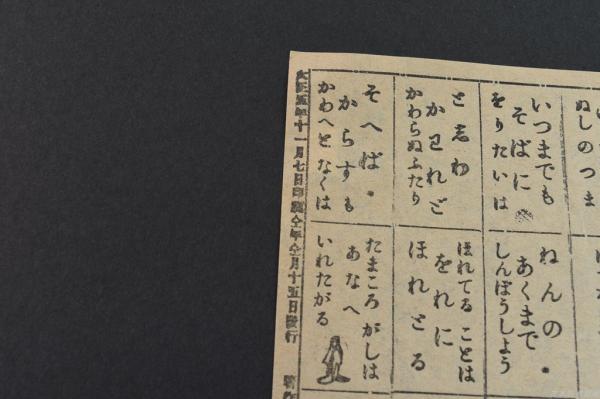 ぬしのつま
いつまでも
そばに
をりたいは
と志わ
かわれど
かわらぬふたり
そへば
からすも
かわへと なくは
ねんの
あくまで
しんぼうしよう
ほれてることは
をれに
ほれとる
たまころがしは
あなへ
いれたがる
大正五年十一月七日印刷仝年仝月十五日發行